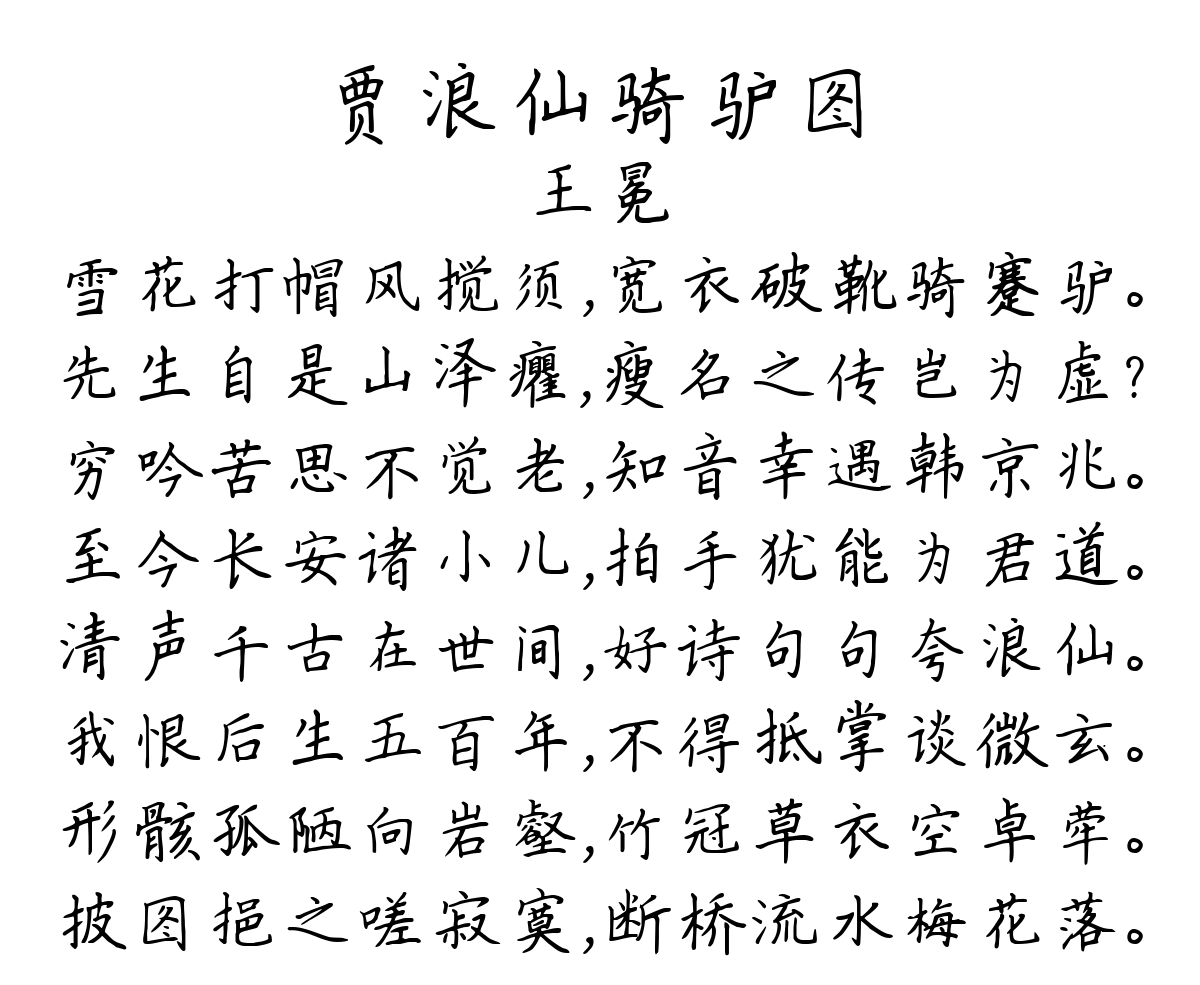 贾浪仙骑驴图
王冕
雪花打帽风搅须,宽衣破靴骑蹇驴。
先生自是山泽癯,瘦名之传岂为虚?
穷吟苦思不觉老,知音幸遇韩京兆。
至今长安诸小儿,拍手犹能为君道。
清声千古在世间,好诗句句夸浪仙。
我恨后生五百年,不得抵掌谈微玄。
形骸孤陋向岩壑,竹冠草衣空卓荦。
披图挹之嗟寂寞,断桥流水梅花落。